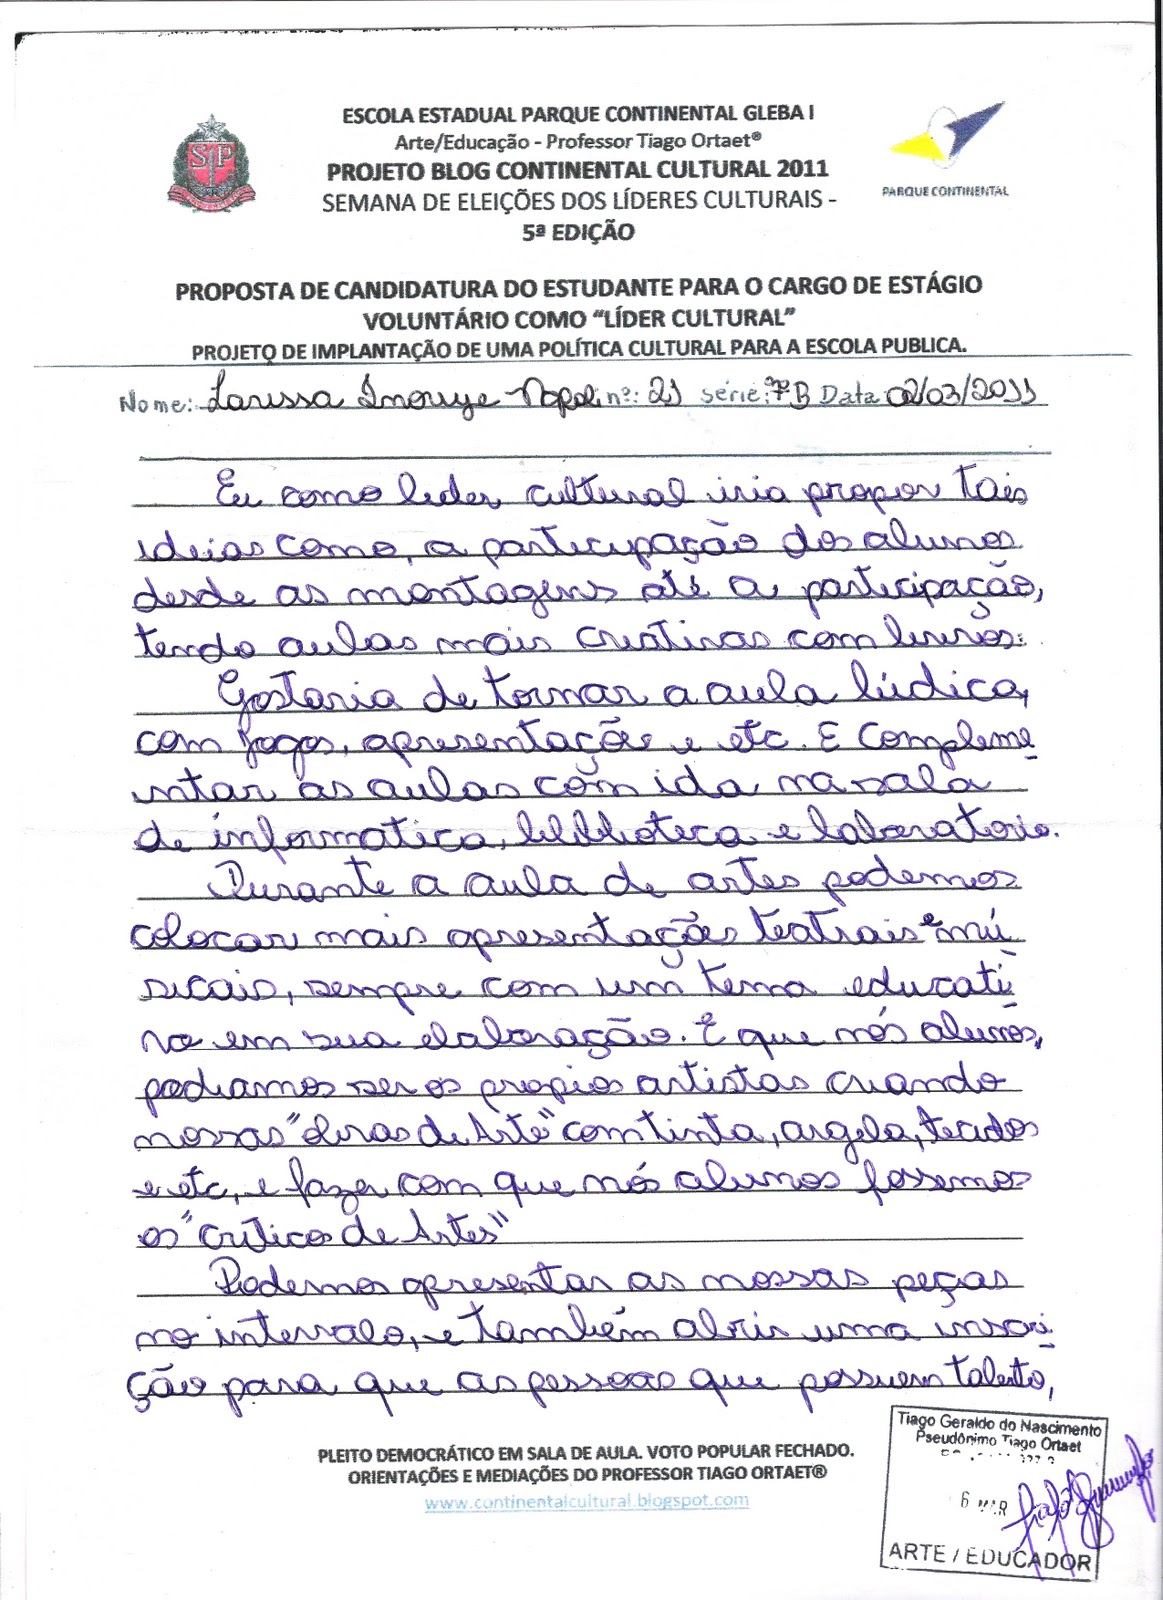 ESCOLA ESTADUAL PARQUE CONTINENTAL GLEBA I
Arte/Educação - Professor Tiago Ortaet®
PROJETO BLOG CONTINENTAL CULTURAL 2011
SEMANA DE ELEIÇÕES DOS LÍDERES CULTURAIS -
5ª EDIÇÃO
SP
PARQUE CONTINENTAL
PROPOSTA DE CANDIDATURA DO ESTUDANTE PARA O CARGO DE ESTÁGIO
VOLUNTÁRIO COMO "LÍDER CULTURAL"
PROJETO DE IMPLANTAÇÃO DE UMA POLÍTICA CULTURAL PARA A ESCOLA PUBLICA.
Nome: Larissa Inouye Napoli nº: 21 série: 7ªB Data: 02/03/2011
Eu como lider cultural iria propor tais
ideias como, a participação dos alunos
desde as montagens até a participação,
tendo aulas mais criativas com livros.
Gostaria de tornar a aula lúdica,
com jogos, apresentações e etc. E compleme
ntar as aulas com ida na sala
de informatica, biblioteca e laboratorio.
Durante a aula de artes podemos
colocar mais apresentações teatrais e mú
sicais, sempre com um tema educati
vo em sua elaboração. E que nós alunos,
podiamos ser os propios artistas criando
nossas "obras de Arte" com tinta, argela, tecidos
e etc, e fazer com que nós alunos fossemos
os "críticos de Artes"
Podemos apresentar as nossas peças
no intervalo, e também abrir uma inscri
ção para que as pessoas que possuem talento,
PLEITO DEMOCRÁTICO EM SALA DE AULA. VOTO POPULAR FECHADO.
ORIENTAÇÕES E MEDIAÇÕES DO PROFESSOR TIAGO ORTAET®
www.continentalcultural.blogspot.com
Tiago Geraldo do Nascimento
Pseudônimo Tiago Ortaet
6 MAR
ARTE / EDUCADOR